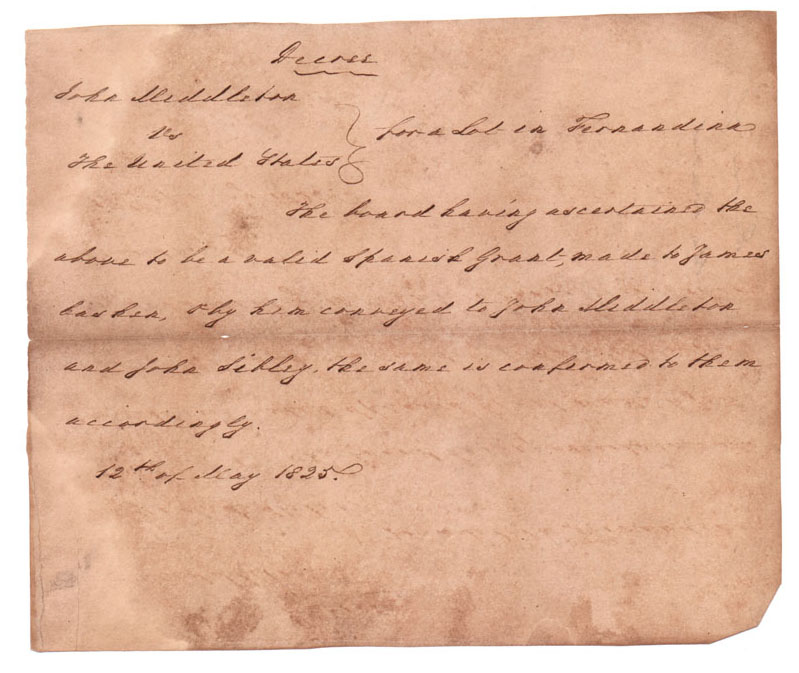 Decree
John Middleton
vs
The United States
for a Lot in Fernandina
The board having ascertained the
above to be a valid Spanish Grant, made to James
Cashen, & by him conveyed to John Middleton
and John Sibley, the same is confirmed to them
accordingly.
12th of May 1825.